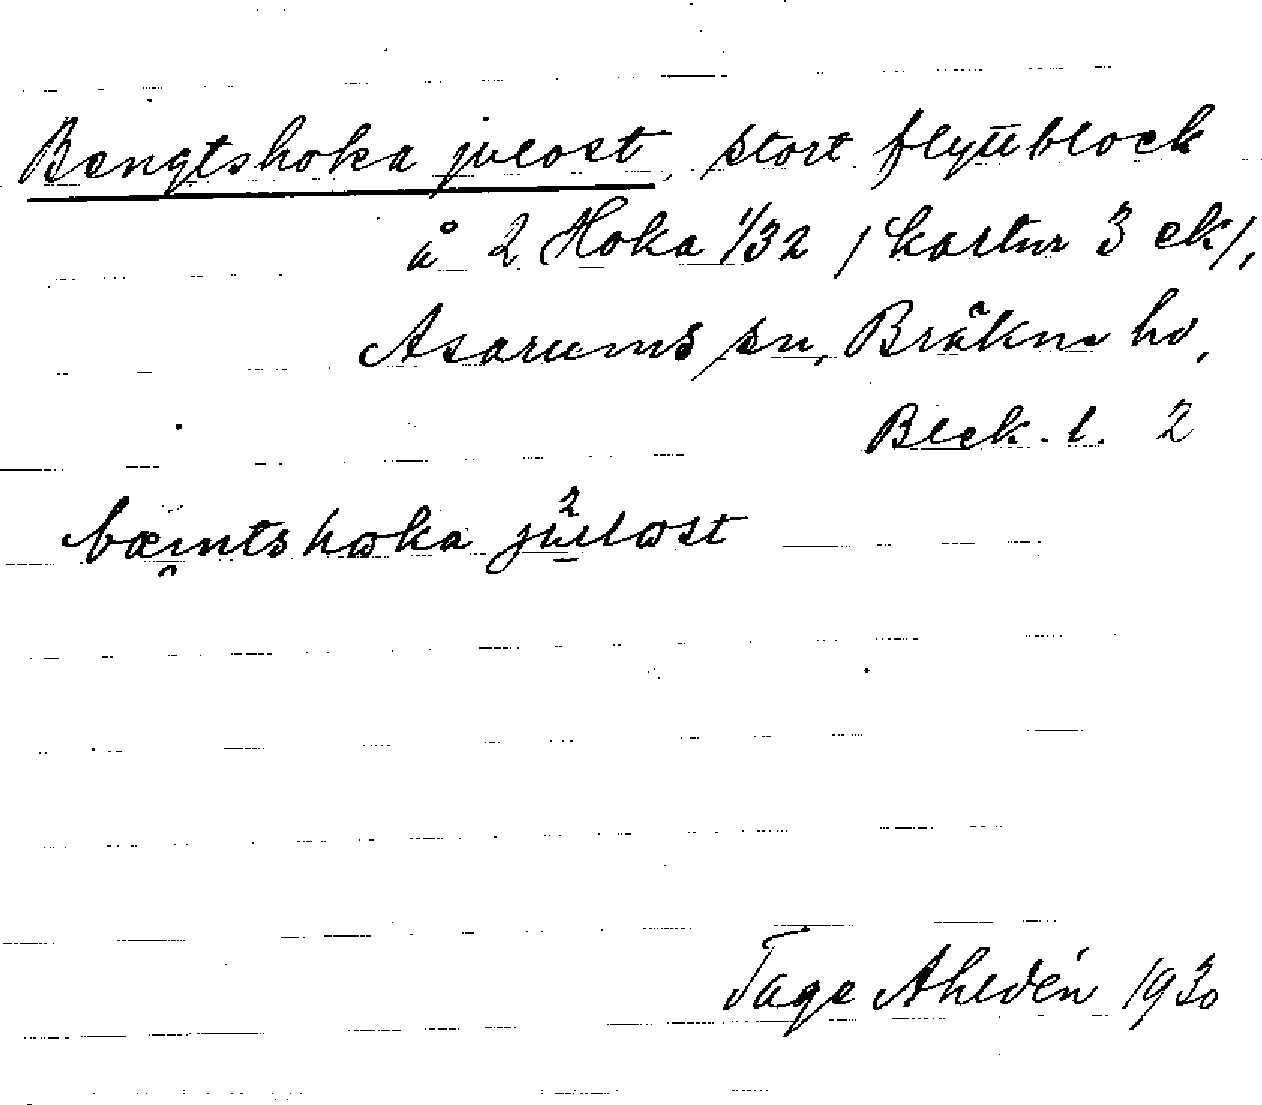 Bengtshoka julost, stort flyttblock
å 2 Hoka 1/32 / kartur 3 ek/,
Asarums sn, Bräkne hd,
Blek. l. 2
julɷst
Tage Ahldén 1930